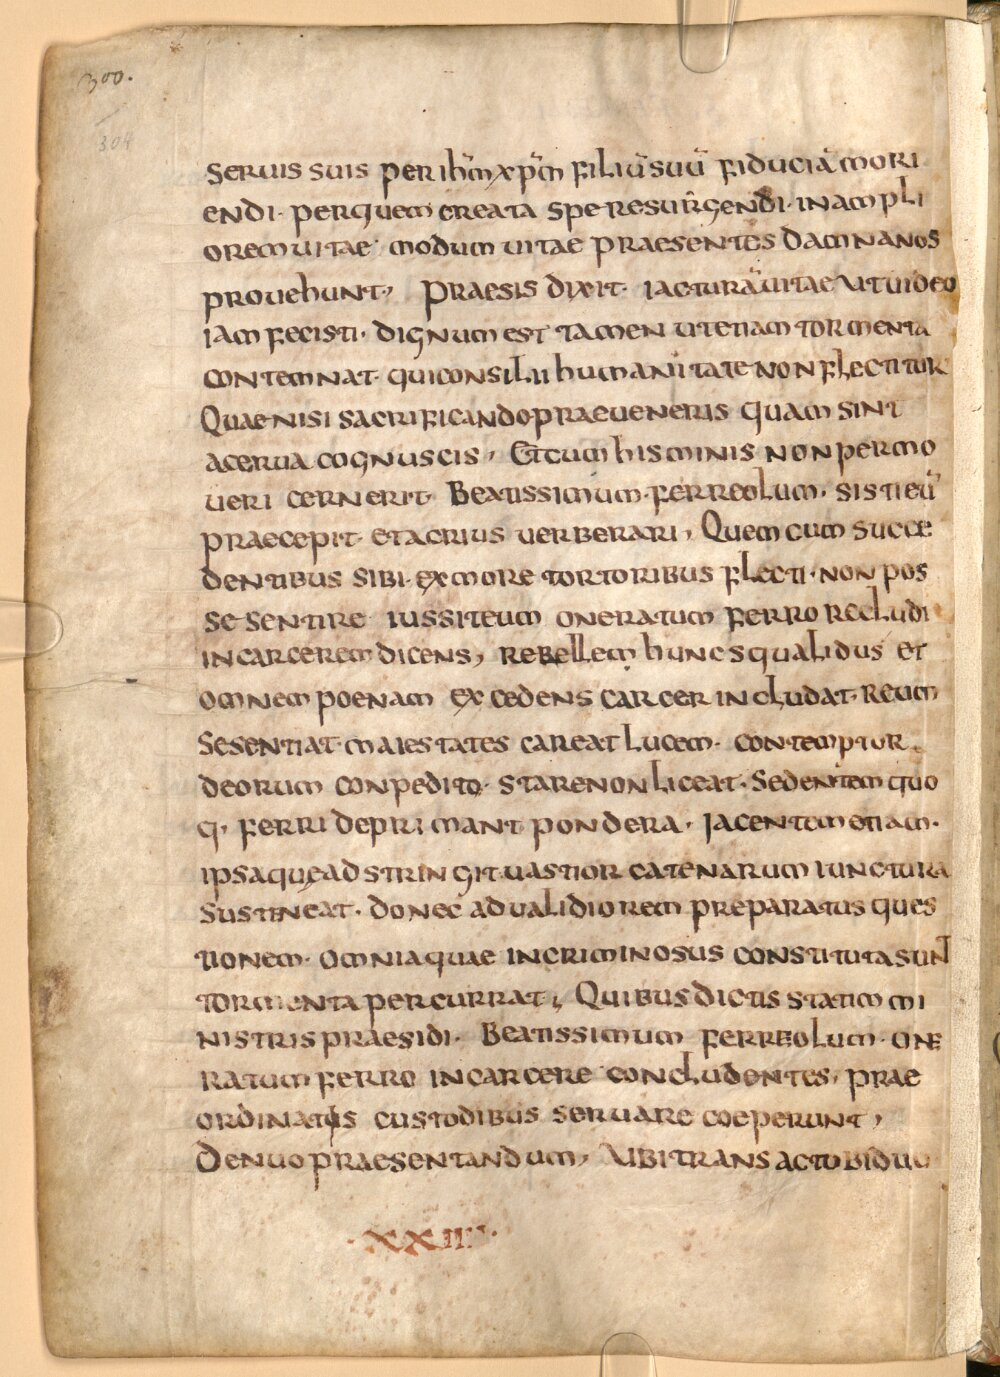 300.
304
seruis suis per ihm̄ xpm̄ filiū suū fiduciā mori
endi· per quem creata spe resur̄gendi· in ampli
orem uitae modum uitae praesentes damnanos
prouehunt, Praesis dixit· iacturā uitae ut uideo
iam fecisti· dignum est tamen ut etiam tormenta
contemnat· qui consilii humanitate non flectitur
Quae nisi sacrificando praeueneris quam sint
acerua cognuscis, Et cum his minis non permo
ueri cernerit· Beatissimum· ferreolum· sisti eū
praecepit· et acrius uerberari, Quem cum succe
dentibus sibi· ex more tortoribus flecti· non pos
se sentire iussit eum oneratum ferro recludi
in carcerem dicens, rebellem hunc squalidus et
omnem poenam excedens carcer includat· Reum
Se sentiat· maiestates careat lucem· contemptor
deorum conpedito· stare non liceat· Sedentem quo
q, ferri deprimant pondera· Jacentem etiam·
ipsaque adstringit uastior catenarum iunctura
sustineat· donec ad ualidiorem preparatus ques
tionem· omnia quae in criminosus constituta sunt
tormenta percurrat, Quibus dictis statim mi
nistris praesidi· Beatissimum ferreolum· one
ratum ferro in carcere concludentes, prae
ordinatis custodibus seruare coeperunt,
Denuo praesentandum, Ubi transacto biduo
·XXII·